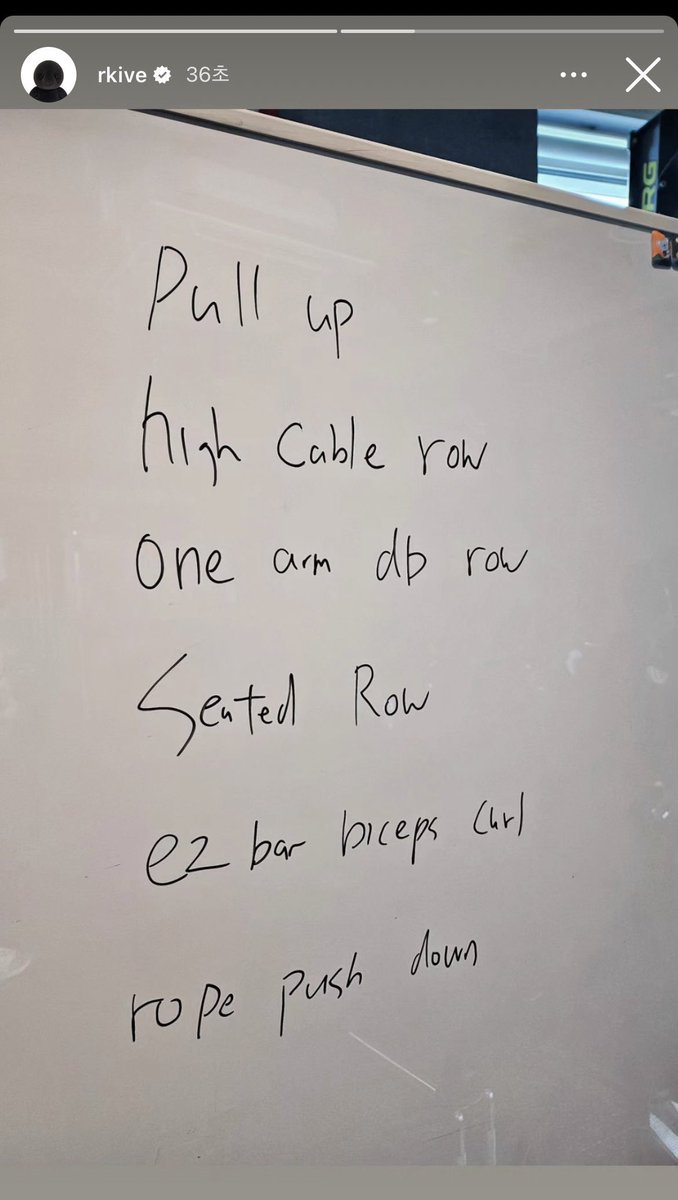 rkive 36초
RG
Pull up
high cable row
One arm db row
Seated Row
ez bar biceps curl
rope push down